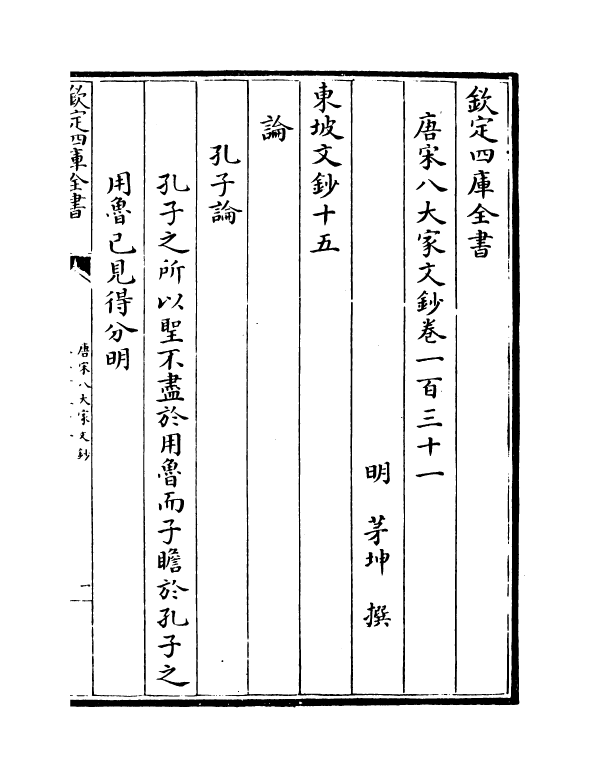 欽定四庫全書
唐宋八大家文鈔卷一百三十一
明　茅坤　撰
東坡文鈔十五
論
孔子論
孔子之所以聖不盡於用魯而子瞻於孔子之
用魯已見得分明
欽定四庫全書
唐宋八大家文鈔
一